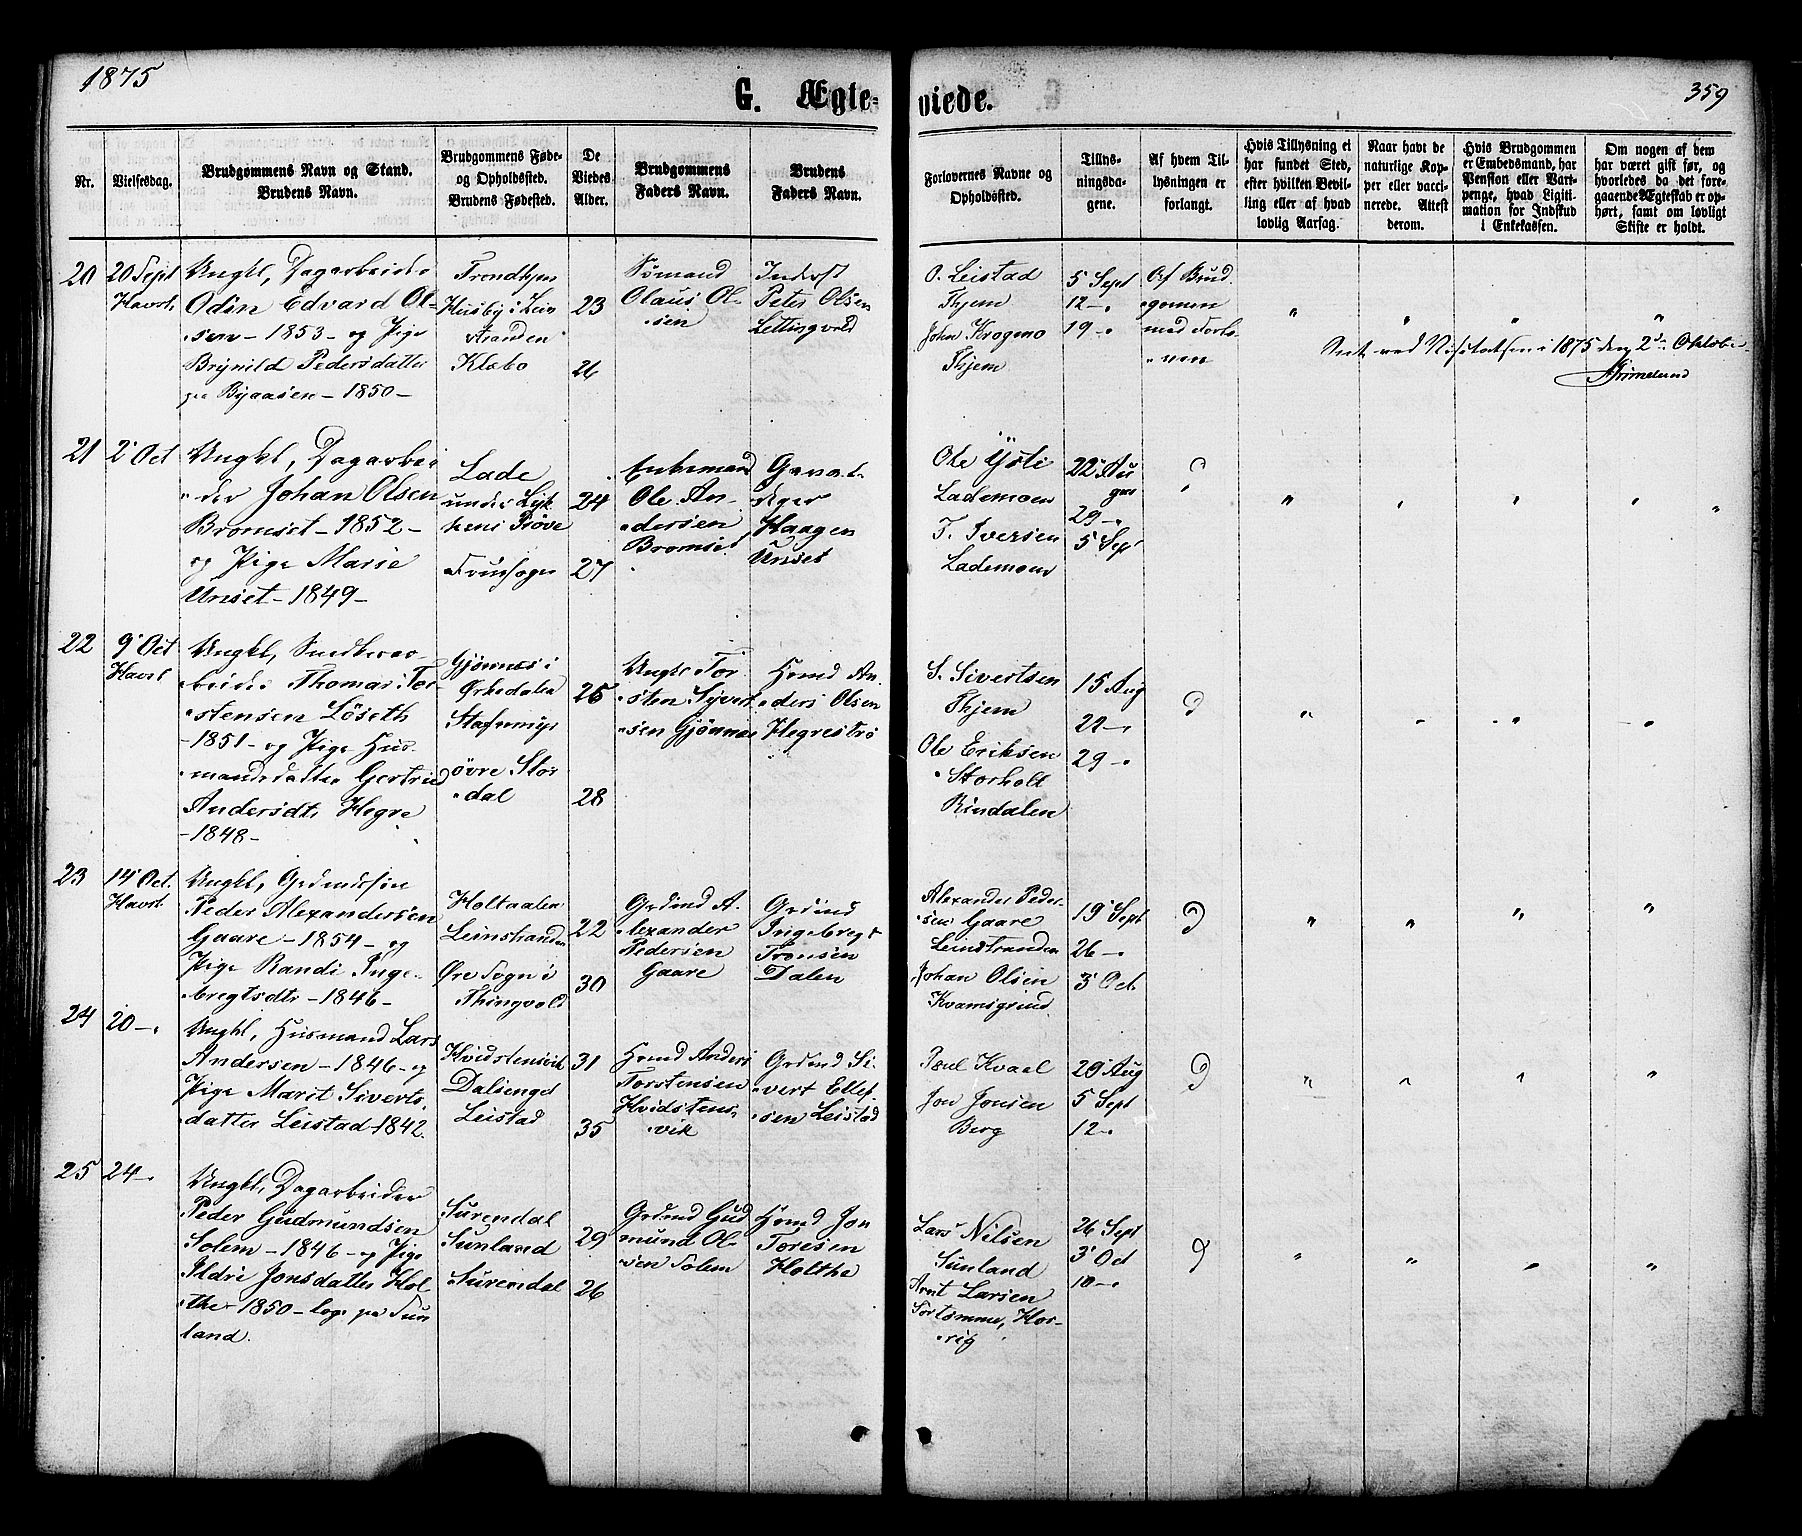 1875
G. Ægte-
viede.
359
Nr.
Vielsesdag.
Brudgommens Navn og Stand.
Brudens Navn.
Brudgommens Føde-
og Opholdssted.
Brudens Fødested.
De
Viedes
Alder.
Brudgommens
Faders Navn.
Brudens
Faders Navn.
Forlovernes Navne og
Opholdssted.
Tillys-
ningsda-
gene.
Af hvem Til-
lysningen er
forlangt.
Hvis Tillysning ei
har fundet Sted,
efter hvilken Bevil-
ling eller af hvad
lovlig Aarsag.
Naar havt de
naturlige Kop-
per eller vacci-
nerede. Attest
derom.
Hvis Brudgommen
er Embedsmand, har
Pension eller Vart-
penge, hvad Ligiti-
mation for Indskud
i Enkekassen.
Om nogen af dem
har været gift før, og
hvorledes da det fore-
gaaende Ægteskab er op-
hørt, samt om lovligt
Skifte er holdt.
20
20 Sept
Havst.
Ungkl, Dagarbeider
Odin Edvard Ol-
sen - 1853 - og Pige
Brynild Pedersdatter
paa Byaasen - 1850 -
Trondhjem
Husby i Lein
stranden
Klæbo
23
26
Sømand
Olaus Ol-
sen
Inderst
Peter Olsen
Lettingvold
O. Leistad
Thjem
John Krogmo
Thjem
5 Sept
12 -
19 -
Af Brud
gomen
med Forlo
ven
" " " "
Seet ved Visitatsen i 1875 den 2de Oktober
Grimelund
21
2 Oct
Ungkl, Dagarbei
der Johan Olsen
Bromset - 1852 -
og Pige Marie
Unset - 1849 -
Lade
under Lyk
kens Prøve
Fruesogn
24
27
Enkemand
Ole An-
dersen
Bromset
Gaard-
eger
Haagen
Unset
Ole Ysti
Lademoen
T. Iversen
Lademoen
22 Au
gus
29 -
5 Sept
" " " " "
22
9 Oct
Havst
Ungkl, Snedkerar-
beider Thomas Tor-
stensen Löseth
- 1851 - og Pige Hus-
mandsdatter Gertrud
Andersdt. Hegre
- 1848 -
Gjønnes i
Ørkedalen
Stafnemyr
øvre Stor
dal
26
28
Ungkl Tor
sten Syvert
sen Gjønnes
Hsmd An
ders Olsen
Hegrestrø
S. Sivertsen
Thjem
Ole Eriksen
Storholt
Rindalen
15 Aug
22 -
29 -
" - " -
23
14 Oct.
Havst.
Ungkl, Grdmdssøn
Peder Alexandersen
Gaare - 1854 - og
Pige Randi Inge-
bregtsdtr - 1846 -
Holtaalen
Leinstranden
Øre Sogn i
Thingvold
22
30
Grdmd A-
lexander
Pedersen
Gaare
Grdmd
Ingebregt
Tronsen
Dalen
Alexander Peder-
sen Gaare
Leinstranden
Johan Olsen
Kvamsgrind
19 Sept
26 -
3 Oct
" " " "
24
20 -
Ungkl, Husmand Lars
Andersen - 1846 - og
Pige Marit Siverts
datter Leistad - 1842
Hvidstensvik
Dalsenget
Leistad
31
35
Hsmd Anders
Torstensen
Hvidstens
vik
Grdmd Si-
vert Ellef-
sen Leistad
Poul Kvaal
Jon Jonsen
Berg
29 Aug
5 Sept
12 -
" " " "
25
24 -
Ungkl, Dagarbeider
Peder Gudmundsen
Solem - 1846 - og Pige
Ildri Jonsdatter Hol
the - 1850 - loge paa Sun
land.
Surendal
Sunland
Surendal
29
26
Grdmd Gud
mund Ol-
sen Solem
Hsmd Jon
Toresen
Holthe
Lars Nilsen
Sunland
Arnt Larsen
Sortsmme, Hor-
rig
26 Sept
3 Oct
10 -
" " " "